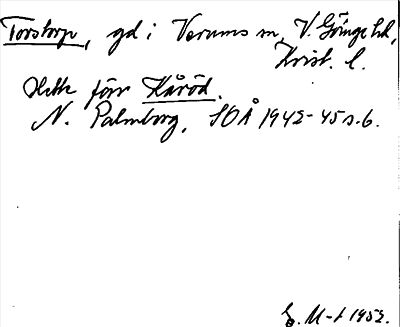 Torstorp, gd i Verums sn, V. Göinge hd,
Krist. l.
Hette förr Håröd.
N. Palmborg, SOÅ 1942-45 s. 6.
E. M-t 1952.